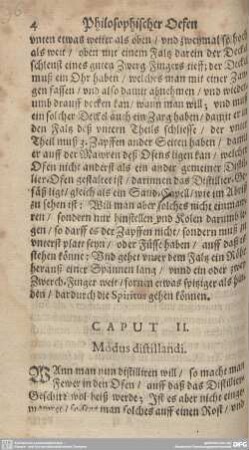 4 Philosophischer Oefen
vnten etwas weiter als oben / vnd zweymal so hoch
als weit / oben mit einem Faltz darein der Deckel
schleust eines guten Zwerg Fingers tieff; der Deckel
muß ein Ohr haben / welches man mit einer Zan-
gen fassen / vnd also damit abnehmen / vnd wieder-
umb drauff decken kan / wann man will; vnd muß
ein solcher Deckel auch ein Zarg haben / damit er in
den Faltz deß vntern Theils schliesse / der vnter
Theil muß 3. Zapffen an der Seiten haben / damit
er auff der Mawren deß Ofens ligen kan / welcher
Ofen nicht anderst als ein ander gemeiner Distil-
lier-Ofen gestaltet ist / darinnen das Distillier-Ge-
fäß ligt / gleich als ein Sand-Capell / wie im Abriß
zu sehen ist: Will man aber solches nicht einmau-
ren / sondern nur hinstellen vnd Kolen darumb le-
gen / so darff es der Zapffen nicht / sondern muß
vnterst platt seyn / oder Füsse haben / auff daß es
stehen könne: Vnd gehet vnter dem Faltz ein Röhr
herauß einer Spannen lang / vnnd ein oder zween
Zwerch-Finger weit / fornen etwas spitziger als hin-
den / dardurch die Spiritus gehen können.
CAPUT II.
Modus distillandi.
WAnn man nun distilliren will / so macht man
Fewer in den Ofen / auff daß das Distillier-
Geschirr wol heiß werde; Ist es aber nicht einge-
mauret / so setzt man solches auff einen Rost / vnd